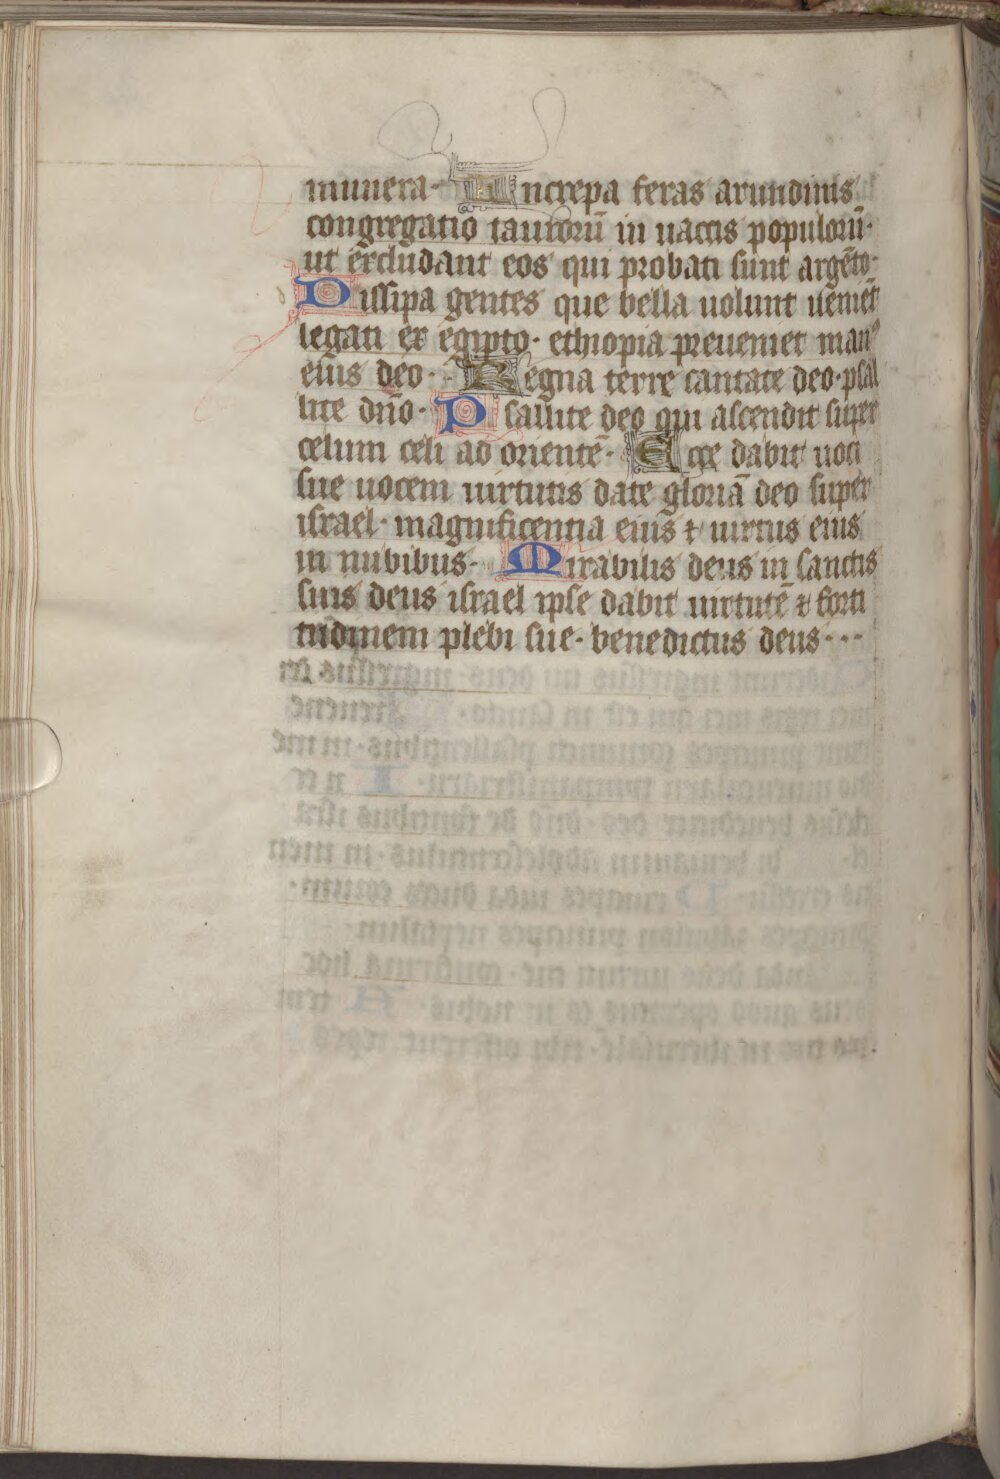 munera· Increpa feras arundinis
congregatio taurorū in uaccis populorū·
ut excludant eos qui probati sunt argēto·
Dissipa gentes que bella uolunt ueniēt
legati ex egipto· ethiopia preueniet man⁹
eius deo· Regna terre cantate deo· psal
lite dn̄o· Psallite deo qui ascendit super
celum celi ad orientē· Ecce dabit uoci
sue uocem uirtutis date gloriā deo super
israel· magnificentia eius ⁊ uirtus eius
in nubibus· Mirabilis deus in sanctis
suis deus israel ipse dabit uirtutē ⁊ forti
tudinem plebi sue· benedictus deus···